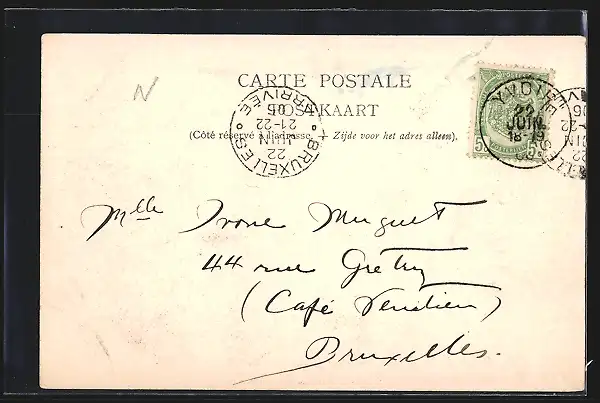 N
CARTE POSTALE
POSTKAART
(Côté réservé à l'adresse. — Zijde voor het adres alleen).
BRUXELLES
ARRIVÉE
22
JUIN
21-22
22
JUIN
18-
5
5
Mlle Ivone Muguet
44 rue Grétry
(Café Vénitien)
Bruxelles.